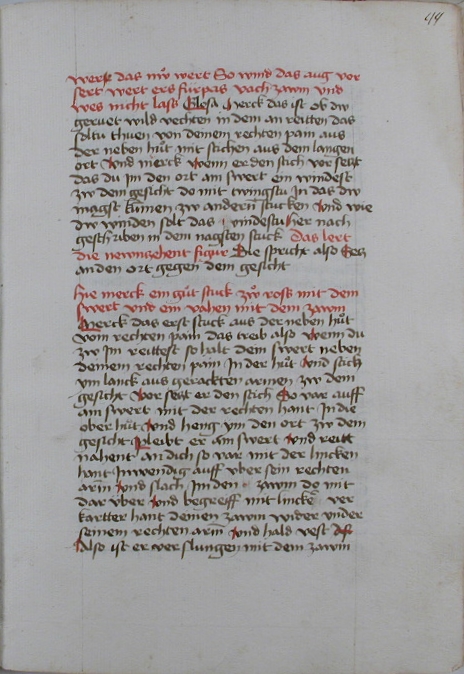 44
werst das nw wert So wind das aug ver
sert wert ers furpas vach zawm vnd
ves nicht lass Glosa Merck das ist ob dw
geruet wild vechten in dem an reitten das
soltu thuen von deinem rechten pain aus
der neben hut mit stichen aus dem langen
ort Vnd merck wenn er den stich vor setzt
das du Im den ort am swert ein windest
zw dem gesicht do mit twingstu In das dw
magst kumen zw andern stucken Vnd wie
dw winden solt das vindestu her nach
geschriben in dem nagsten stuck Das lert
die newnzehent figur Die spricht also Setz
an den ort gegen dem gesicht
Hie merck ein gut stuck zw ross mit dem
swert vnd ein vahen mit dem zawm
Merck das erst stuck aus der neben hut
vom rechten pain das treib also wenn du
zw Im reittest so halt dein swert neben
deinem rechten pain In der hut Vnd stich
ym lanck aus gerackten armen zw dem
gesicht Vor setzt er den stich So var auff
am swert mit der rechten hant In die
ober hut Vnd heng ym den ort zw dem
gesicht Pleibt er am swert Vnd reitt
nahent an dich so var mit der lincken
hant Inwendig auff vber sein rechten
arm Vnd slach In den zawm do mit
dar vber Vnd begreiff mit lincker ver
kartter hant deinen zawm wider vnder
seinem rechten arm Vnd hald vest
Also ist er ver slungen mit dem zawm